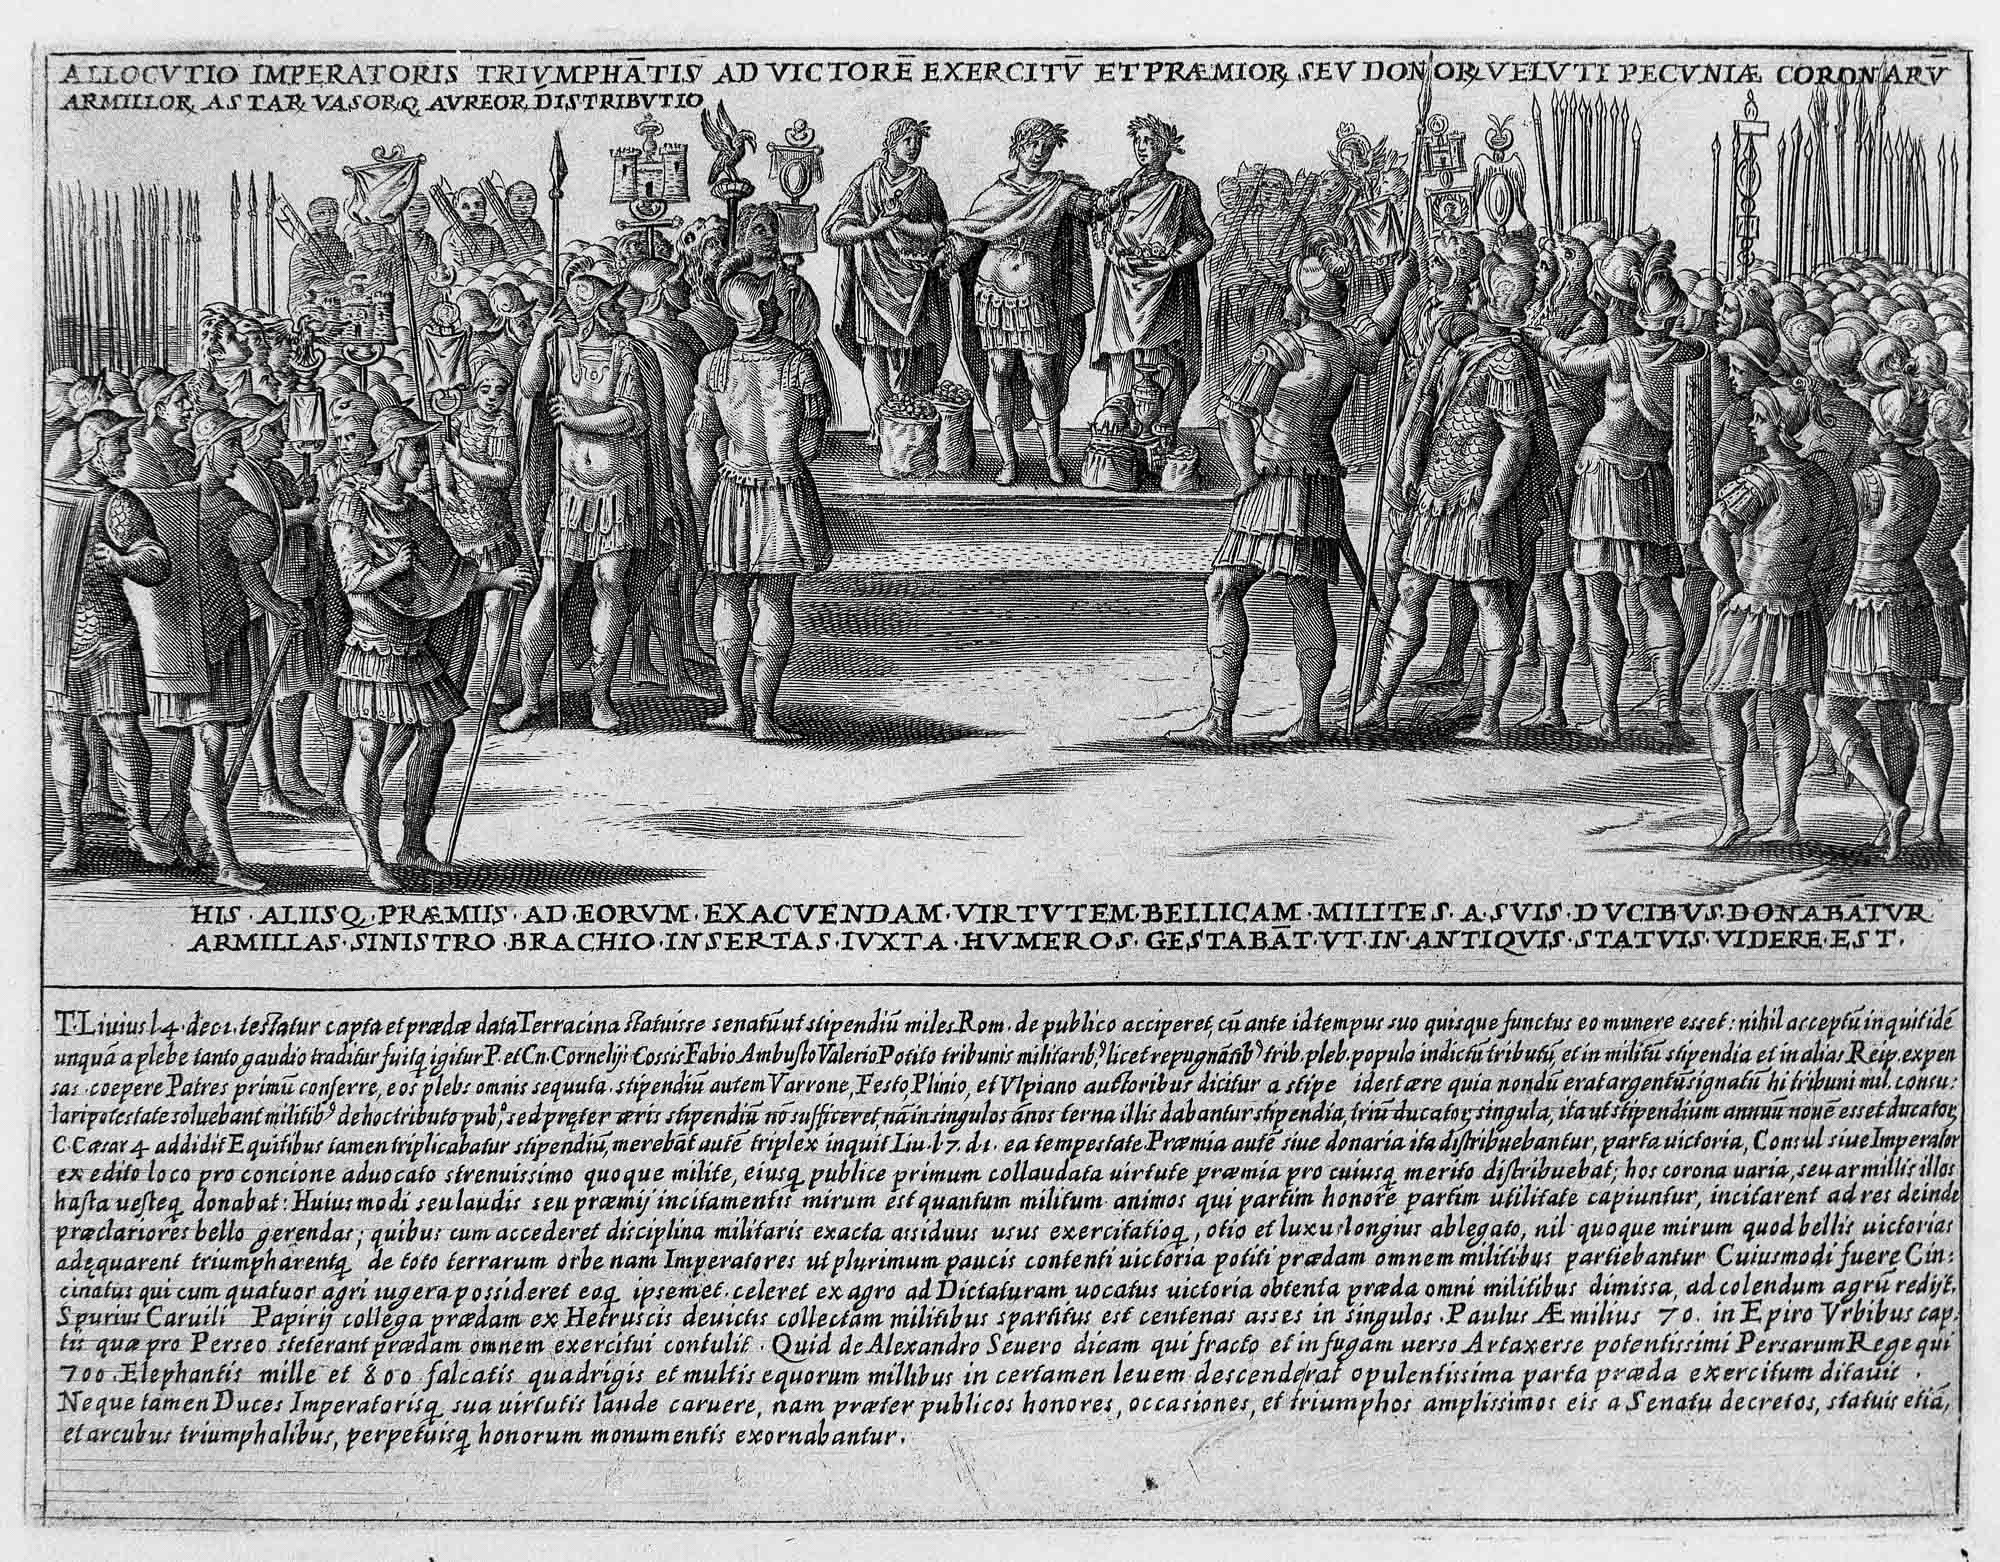 ALLOCVTIO IMPERATORIS TRIVMPHĀTIS AD VICTORĒ EXERCITV̄ ET PRÆMIOR, SEV DONOR, VELVTI PECVNIÆ CORONARV̄
ARMILLOR, ASTAR, VASORQ, AVREOR, DISTRIBVTIO
HIS · ALIISQ · PRÆMIIS · AD · EORVM · EXACVENDAM · VIRTVTEM · BELLICAM · MILITES · A · SVIS · DVCIBVS · DONABĀTVR
ARMILLAS · SINISTRO · BRACHIO · INSERTAS · IVXTA · HVMEROS · GESTABĀT · VT · IN · ANTIQVIS · STATVIS · VIDERE · EST.
T. Liuius l 4. dec. 1. testatur capta et prædæ data Terracina statuisse senatū ut stipendiū miles Rom. de publico acciperet, cū ante id tempus suo quisque functus eo munere esset: nihil acceptū inquit idē
unquā a plebe tanto gaudio traditur fuitq, igitur P. et Cn. Cornelijs Cossis Fabio Ambusto Valerio Potito tribunis militarib, licet repugnātib, trib. pleb. populo indictū tributū, et in militū stipendia et in alias Reip. expen
sas. coepere Patres primū conferre, eos plebs omnis sequuta. stipendiū autem Varrone, Festo, Plinio, et Vlpiano auctoribus dicitur a stipe idest ære quia nondū erat argentū signatū hi tribuni mil. consu:
lari potestate soluebant militib, de hoc tributo pub, sed pręter æris stipendiū nō sufficeret, nā in singulos ānos terna illis dabantur stipendia, triū ducator, singula, ita ut stipendium annuū nouē esset ducator,
C. Cæsar 4 addidit Equitibus tamen triplicabatur stipendiū, merebāt autē triplex inquit Liu. l. 7. d. 1. ea tempestate Præmia autē siue donaria ita distribuebantur, parta uictoria, Consul siue Imperator
ex edito loco pro concione aduocato strenuissimo quoque milite, eiusq, publice primum collaudata uirtute præmia pro cuiusq, merito distribuebat; hos corona uaria, seu armillis illos
hasta uesteq, donabat: Huiusmodi seu laudis seu præmij incitamentis mirum est quantum militum animos qui partim honore partim utilitate capiuntur, incitarent ad res deinde
præclariores bello gerendas; quibus cum accederet disciplina militaris exacta assiduus usus exercitatioq, otio et luxu longius ablegato, nil quoque mirum quod bellis uictorias
adęquarent triumpharentq, de toto terrarum orbe nam Imperatores ut plurimum paucis contenti uictoria potiti prædam omnem militibus partiebantur Cuiusmodi fuere Cin:
cinatus qui cum quatuor agri iugera possideret eoq, ipsemet celeret ex agro ad Dictaturam uocatus uictoria obtenta præda omni militibus dimissa, ad colendum agrū redijt.
Spurius Caruili Papirij collega prædam ex Hetruscis deuictis collectam militibus spartitus est centenas asses in singulos. Paulus Æmilius 70. in Epiro Vrbibus cap,
tis quæ pro Perseo steterant prædam omnem exercitui contulit. Quid de Alexandro Seuero dicam qui fracto et in fugam uerso Artaxerse potentissimi Persarum Rege qui
700. Elephantis mille et 800 falcatis quadrigis et multis equorum millibus in certamen leuem descenderat opulentissima parta præda exercitum ditauit.
Neque tamen Duces Imperatorisq, sua uirtutis laude caruere, nam præter publicos honores, occasiones, et triumphos amplissimos eis a Senatu decretos, statuis etiā,
et arcubus triumphalibus, perpetuisq, honorum monumentis exornabantur.